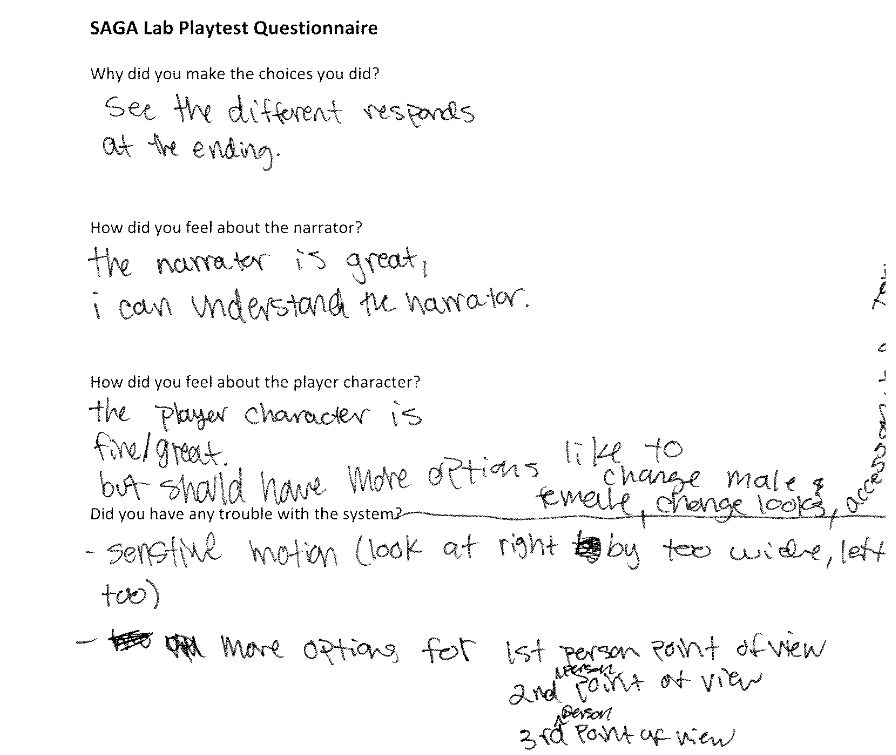 SAGA Lab Playtest Questionnaire
Why did you make the choices you did?
See the different responds
at the ending.
How did you feel about the narrator?
the narrator is great,
i can understand the narrator.
How did you feel about the player character?
the player character is
fine/great.
but should have more options like to
change male &
female, change looks, accessory
Did you have any trouble with the system?
- senstive motion (look at right by too wide, left
too)
- more options for 1st person point of view
2nd person point of view
3rd person point of view